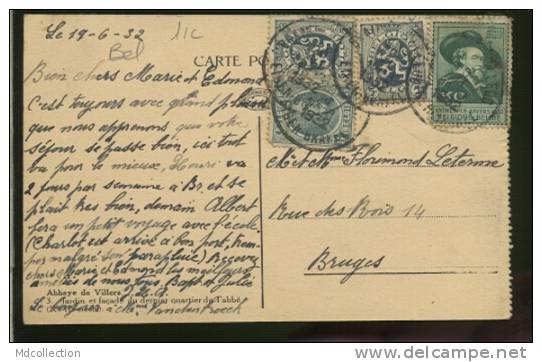 Le 19-6-32
11c
Bel
CARTE PO
Bien chers Marie et Edmond
C'est toujours avec grand plaisir
que nous apprenons que votre
séjour se passe bien, ici tout
va pour le mieux, Henri va
2 jours par semaine à Br. et se
plait très bien, demain Albert
fera un petit voyage avec l'école
(Charlot est arrivé à bon port,
malgré son parapluie) Recevez
chers Marie et Edmond les meilleures
amitiés de nous tous.
Abbaye de Villers
3. Jardin et façade du dernier quartier de l'abbé
BELGIQUE-BELGIË
M et Mme Florimond Leterme
Rue des Bois 14
Bruges
mdcollection
http://www.delcampe.net